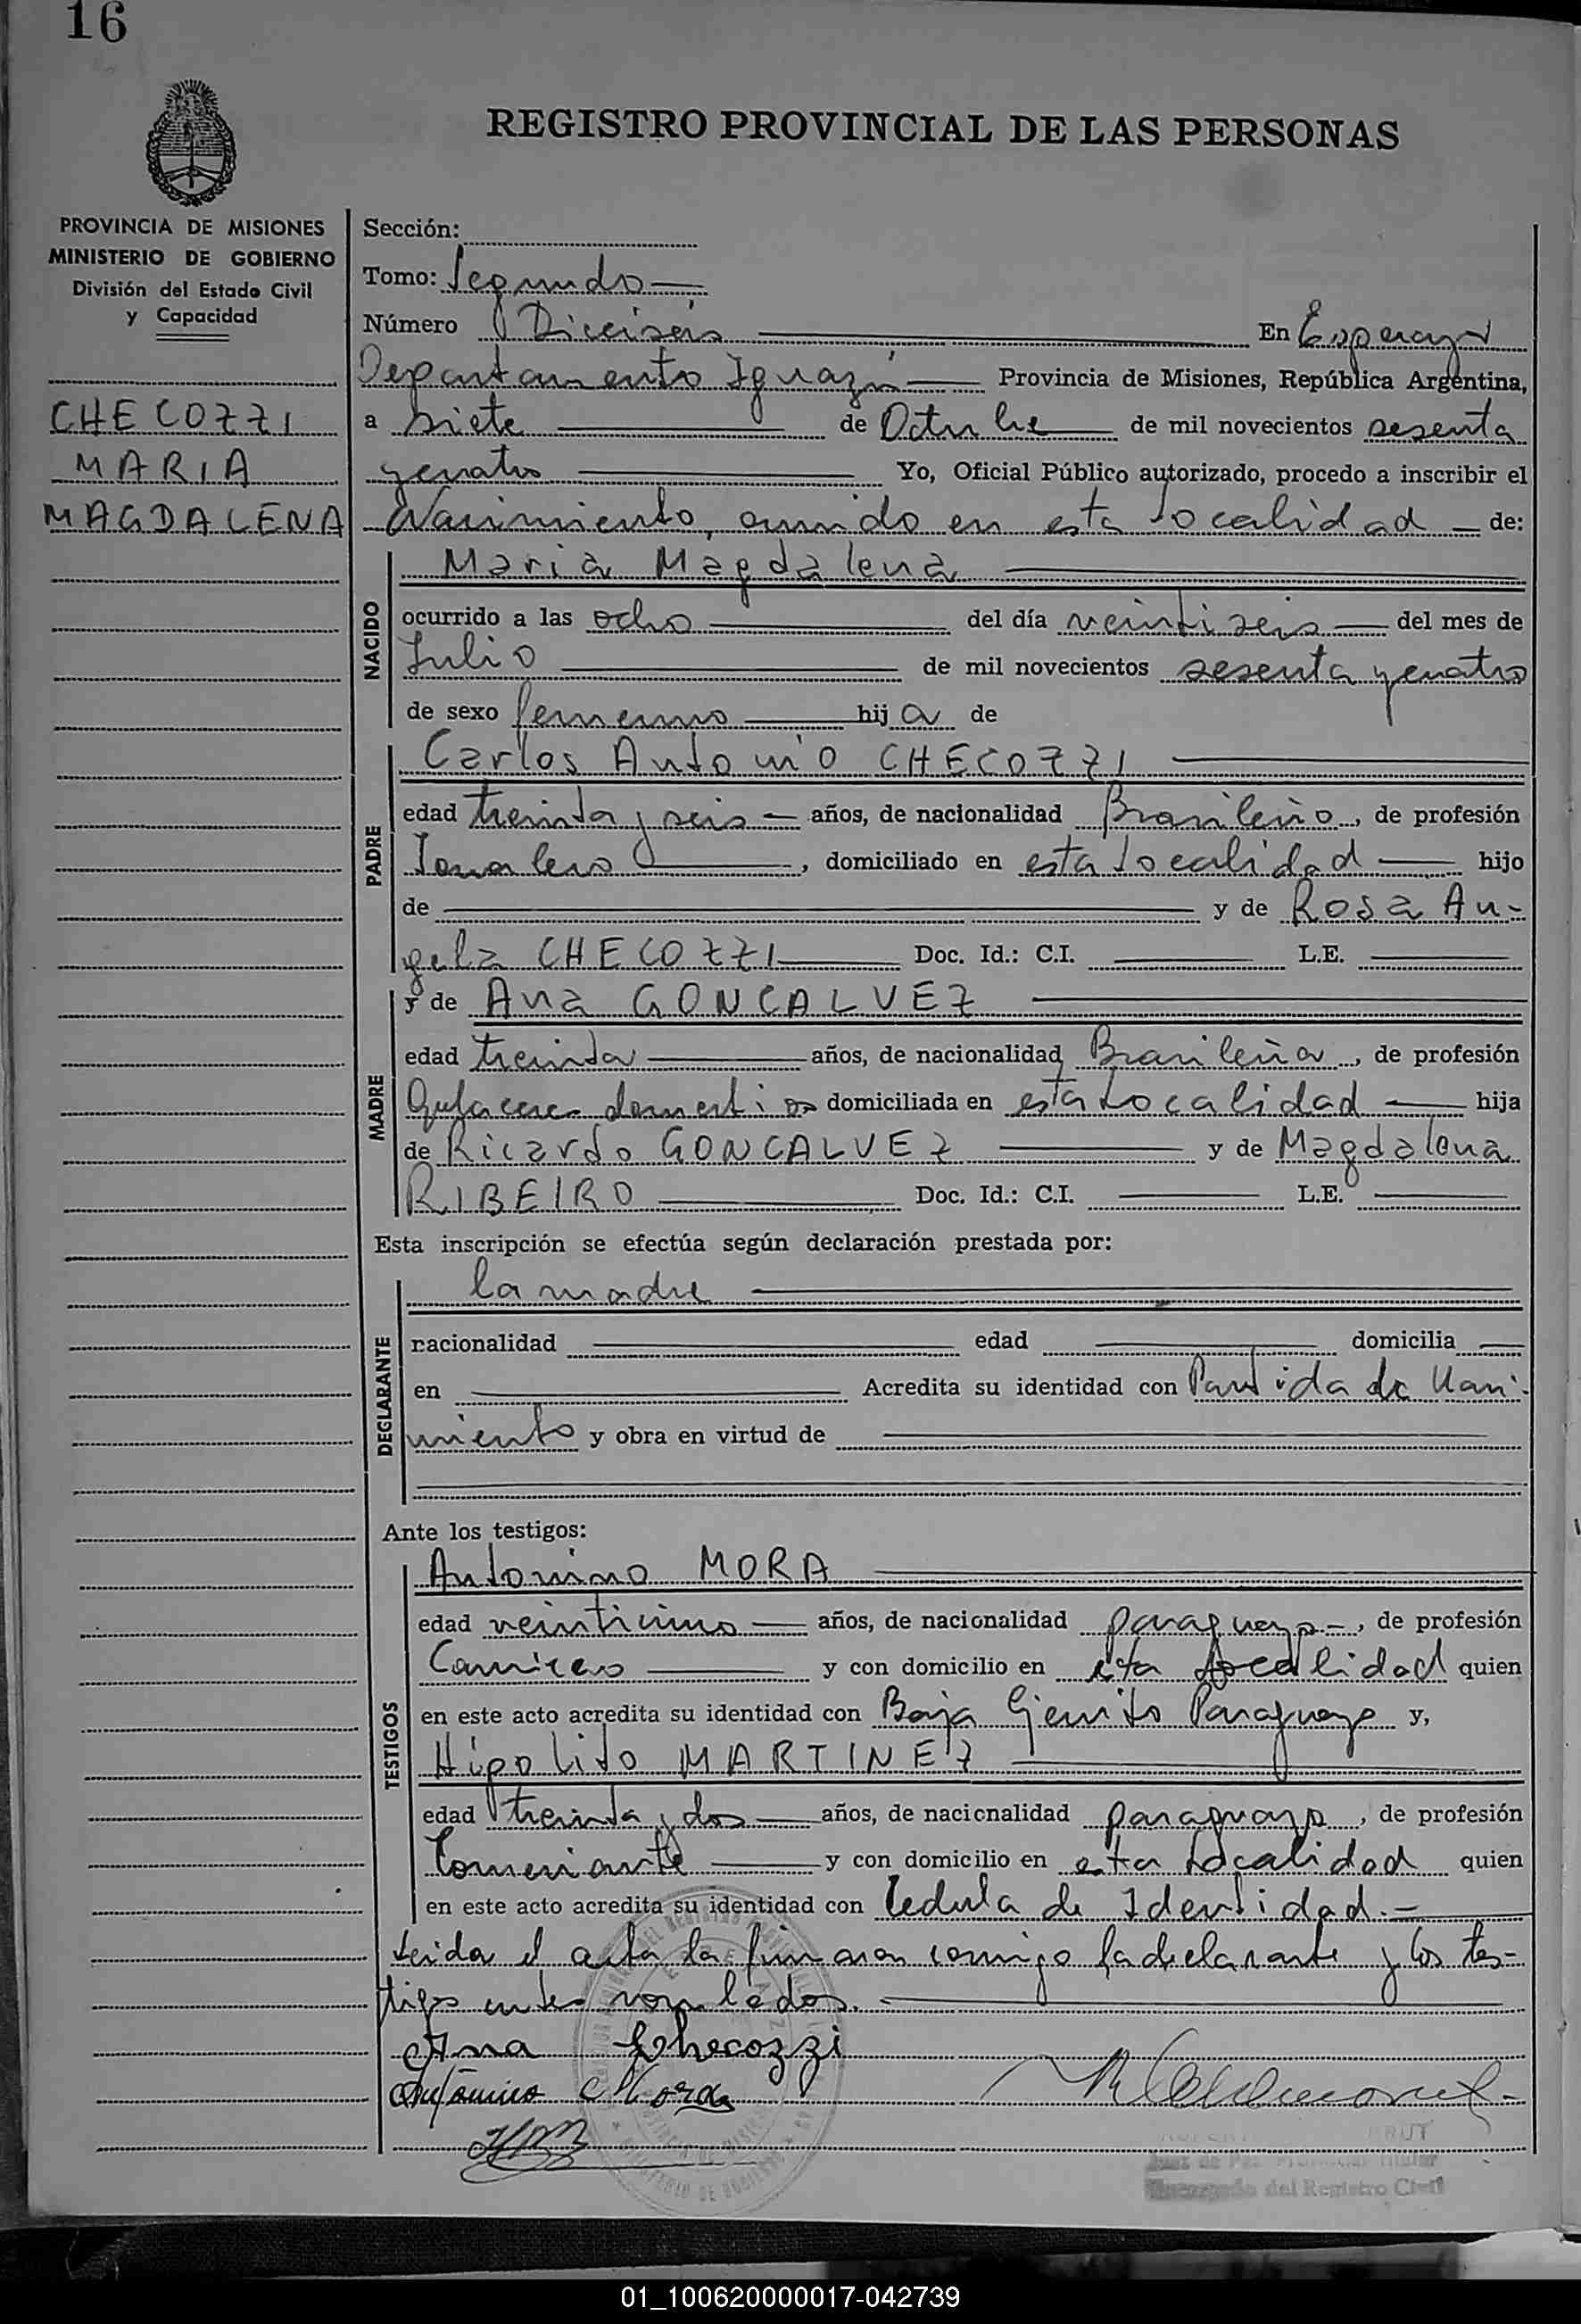 16
REGISTRO PROVINCIAL DE LAS PERSONAS
PROVINCIA DE MISIONES
MINISTERIO DE GOBIERNO
División del Estado Civil
y Capacidad
CHECOZZI
MARIA
MAGDALENA
Sección:
Tomo: Segundo
Número Dieciséis En Esperanza
Departamento Iguazú Provincia de Misiones, República Argentina,
a siete de Octubre de mil novecientos sesenta
y cuatro Yo, Oficial Público autorizado, procedo a inscribir el
Nacimiento, ocurrido en esta localidad de:
NACIDO
Maria Magdalena
ocurrido a las ocho del día veintiseis del mes de
Julio de mil novecientos sesenta y cuatro
de sexo femenino hija de
PADRE
Carlos Antonio CHECOZZI
edad treinta y seis años, de nacionalidad Brasileño, de profesión
Jornalero, domiciliado en esta localidad hijo
de y de Rosa An-
gela CHECOZZI Doc. Id.: C.I. L.E.
MADRE
y de Ana GONCALVEZ
edad treinta años, de nacionalidad Brasileña, de profesión
domiciliada en esta Localidad hija
de Ricardo GONCALVEZ y de Magdalena
RIBEIRO Doc. Id.: C.I. L.E.
Esta inscripción se efectúa según declaración prestada por:
DECLARANTE
la madre
nacionalidad edad domicilia
en Acredita su identidad con Partida de Naci-
miento y obra en virtud de
Ante los testigos:
TESTIGOS
Antonino MORA
edad veinticinco años, de nacionalidad paraguayo, de profesión
Carnicero y con domicilio en esta localidad quien
en este acto acredita su identidad con Baja Ejercito Paraguayo y,
Hipolito MARTINEZ
edad treinta y dos años, de nacionalidad paraguayo, de profesión
Comerciante y con domicilio en esta localidad quien
en este acto acredita su identidad con Cedula de Identidad.-
Leida el acta la firmaron conmigo la declarante y los tes-
tigos antes nombrados.
Ana Checozzi
Mora
Juez de Paz Titular
Encargado del Registro Civil
01_100620000017-042739